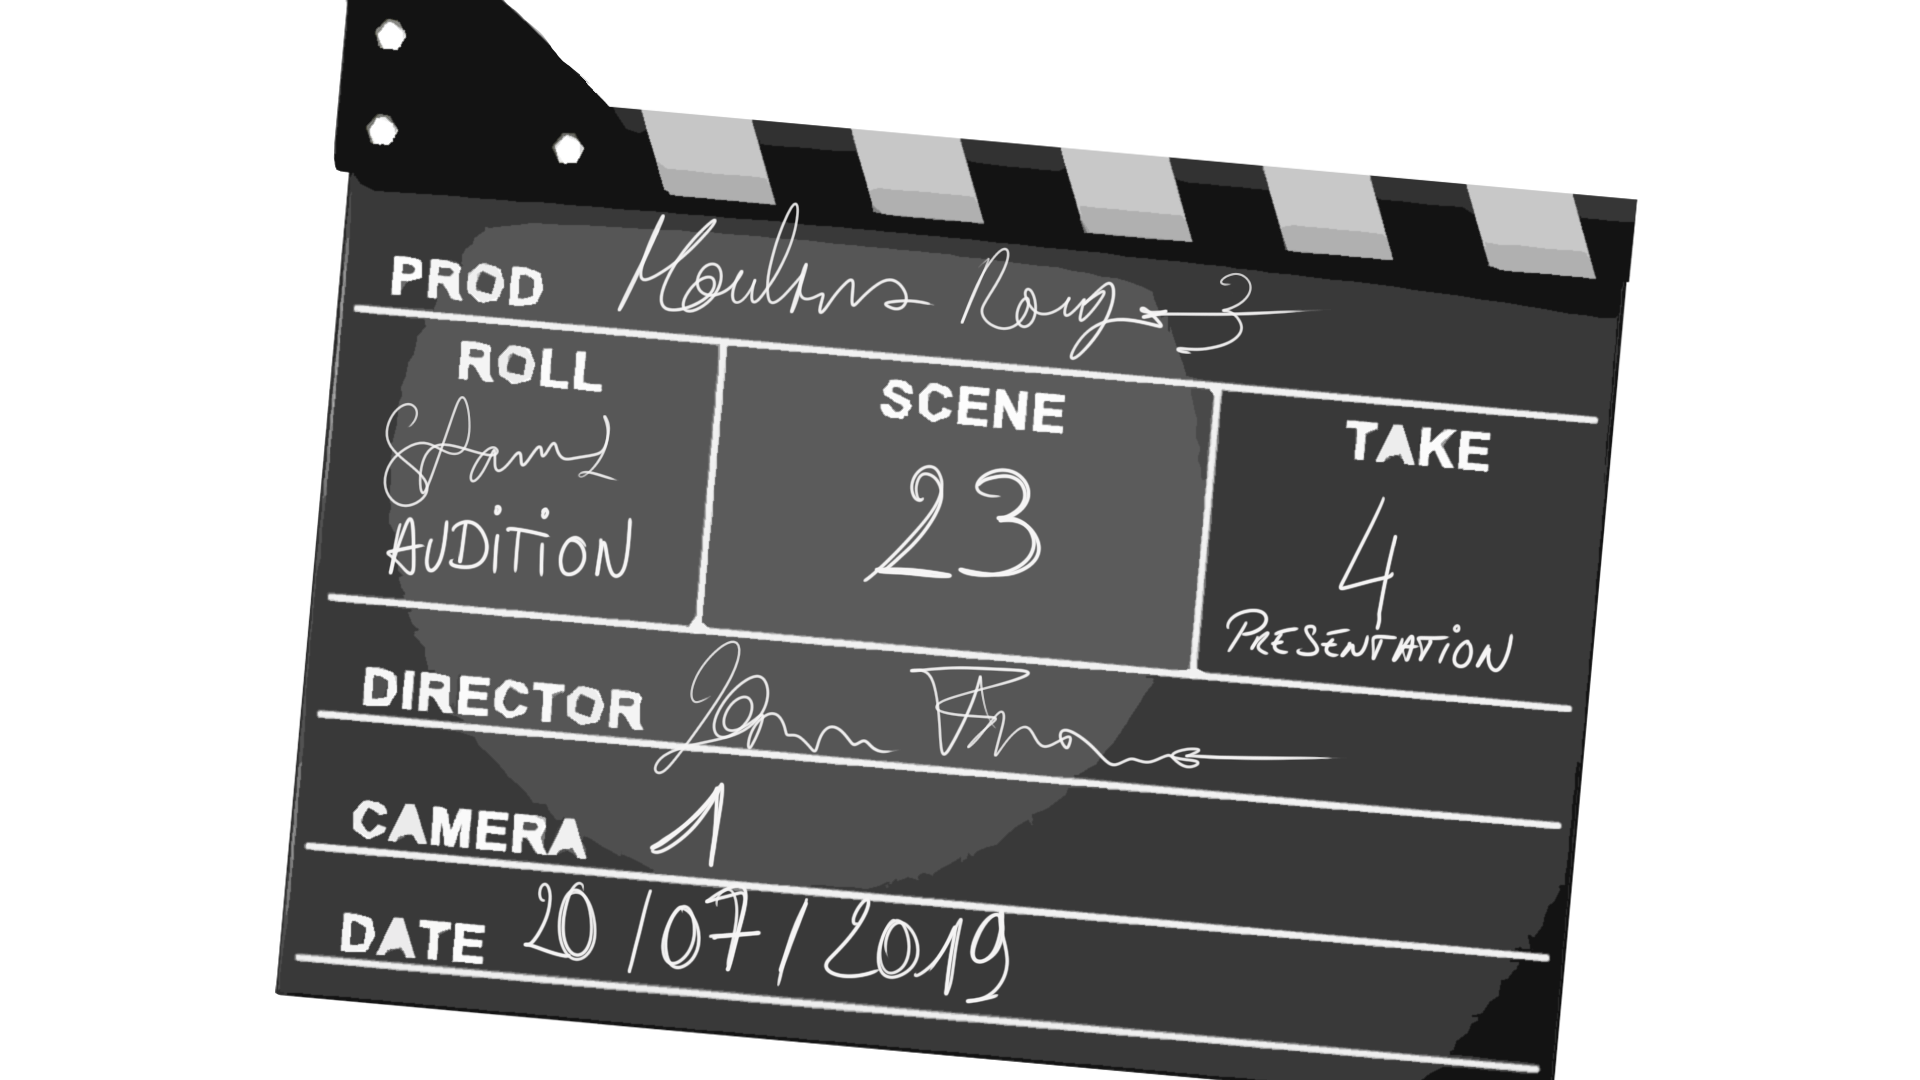 PROD Moulins Rouge 3
ROLL
AUDiTiON
SCENE
23
TAKE
4
PRESENTATiON
DIRECTOR
CAMERA 1
DATE 20/07/2019